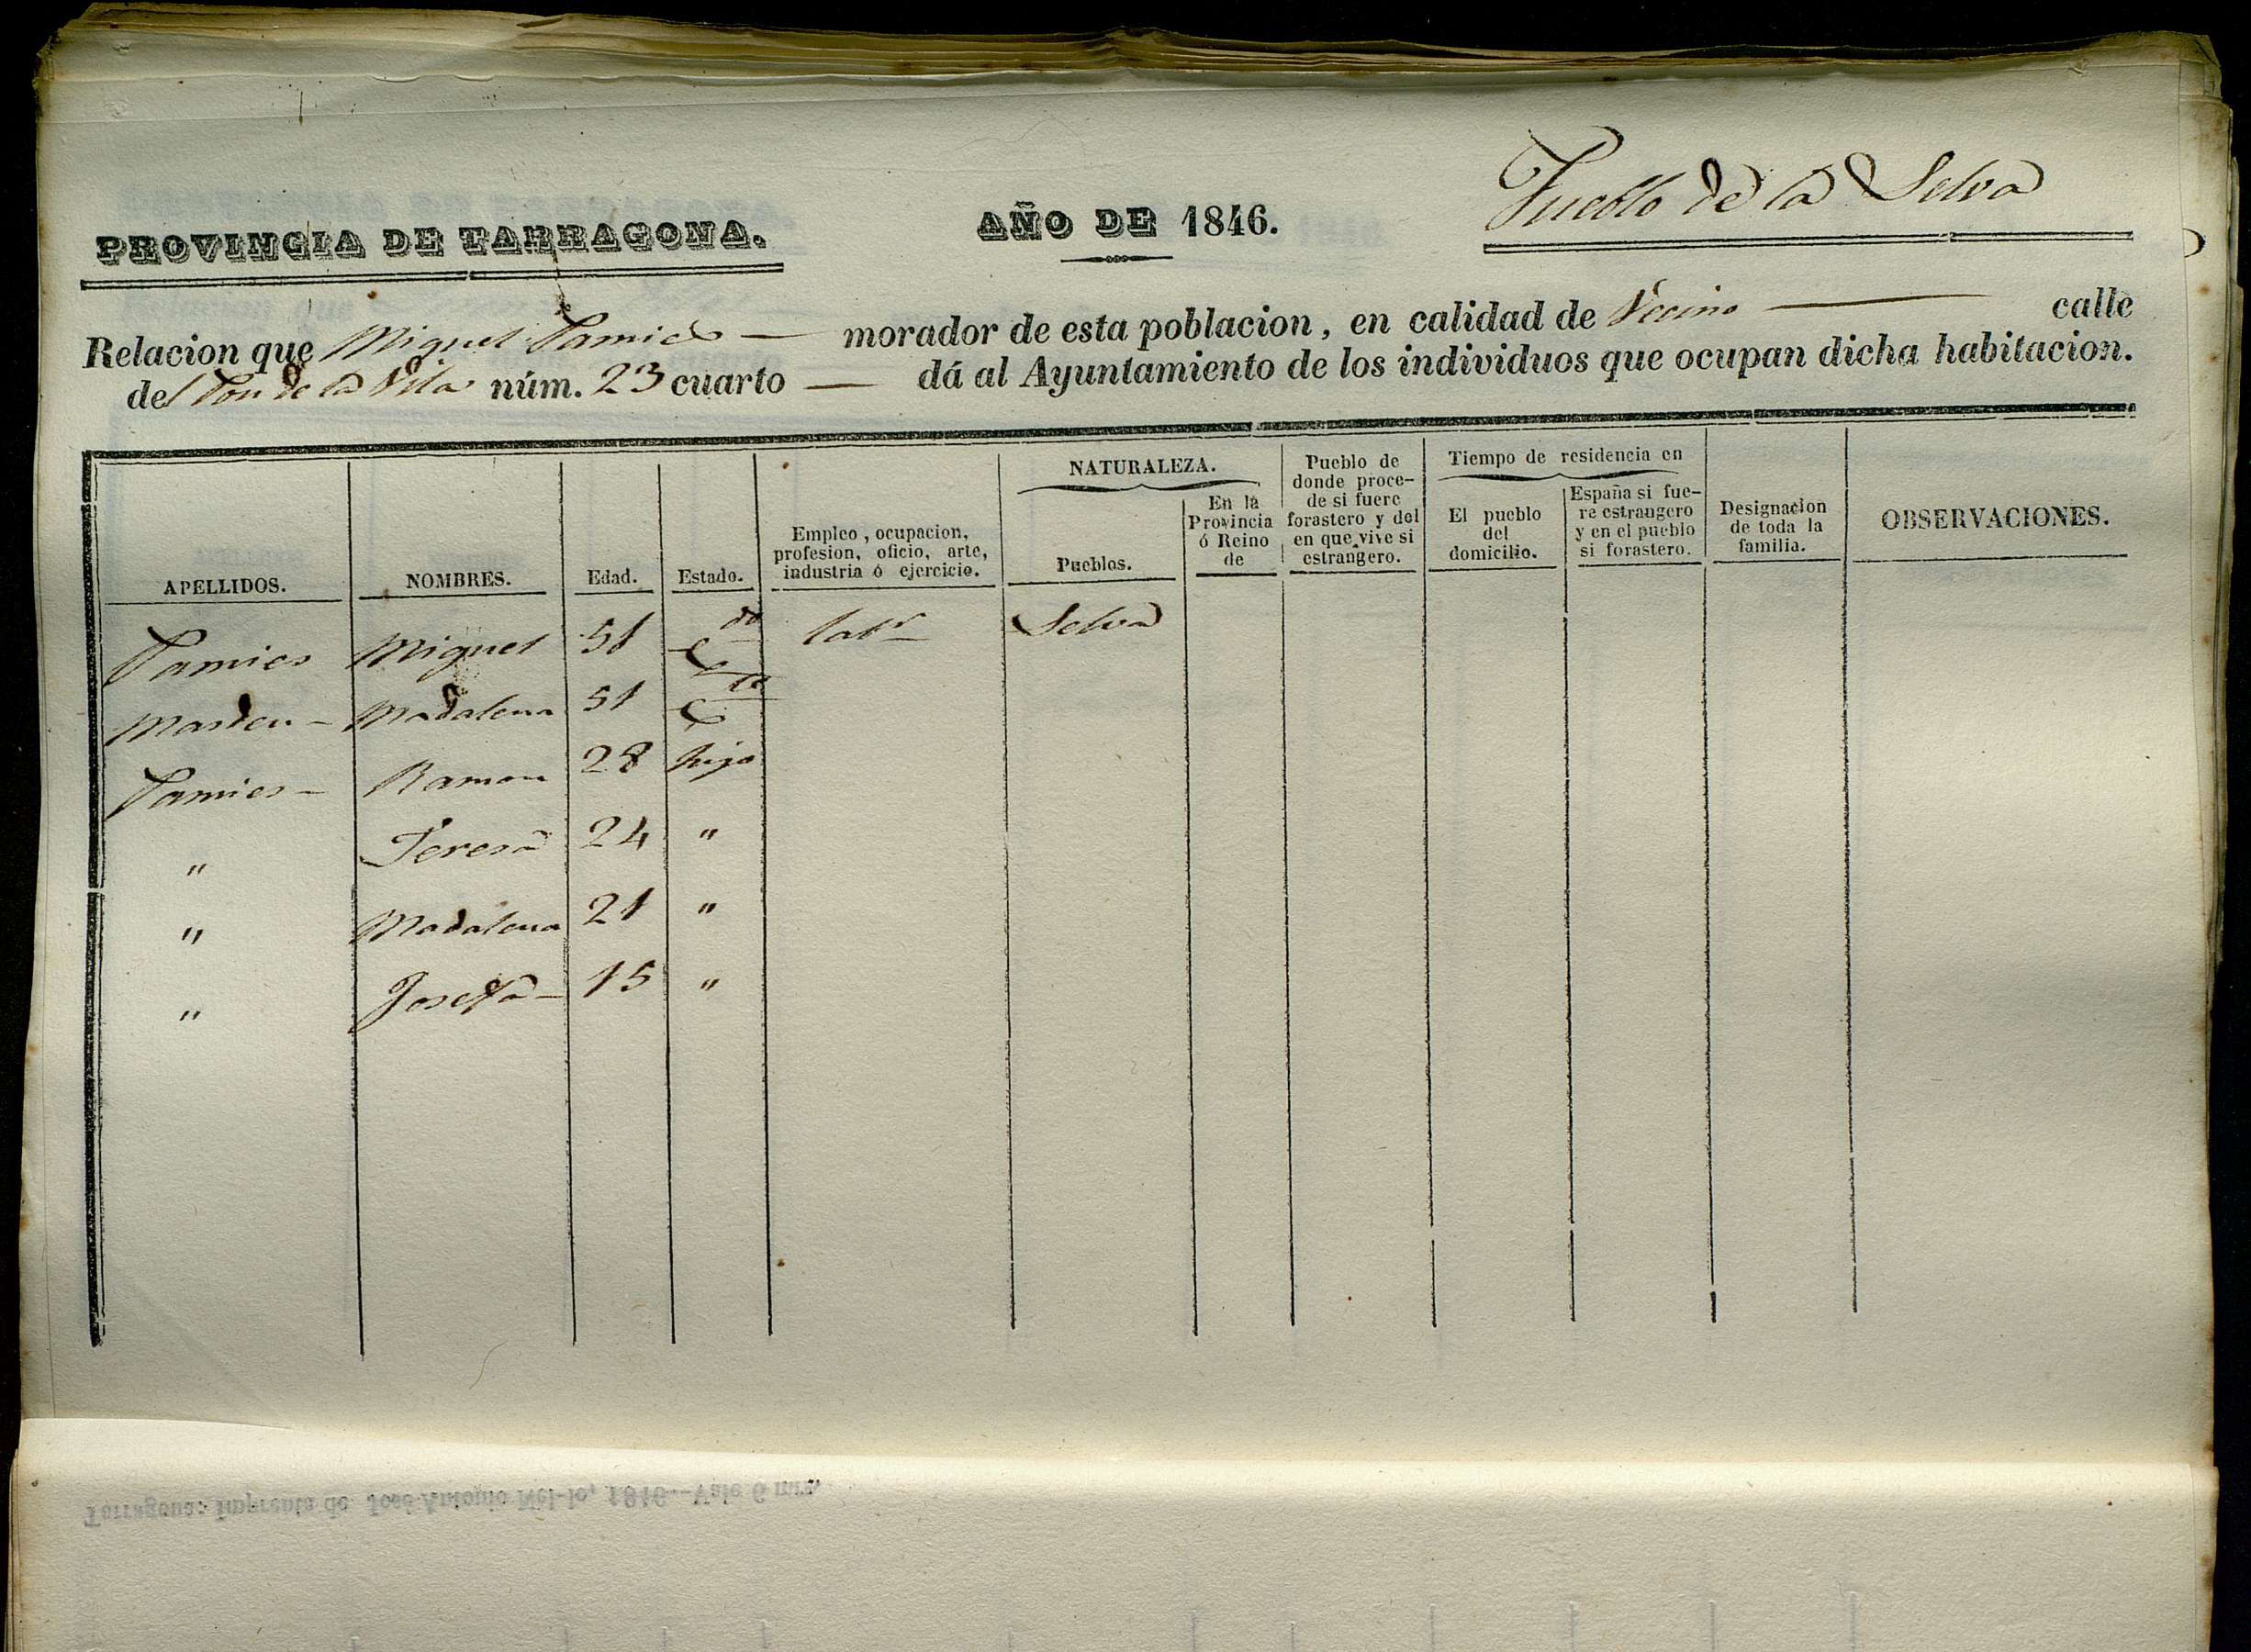 PROVINCIA DE TARRAGONA.
AÑO DE 1846.
Pueblo de la Selva
Relacion que Miguel Pamies — morador de esta poblacion, en calidad de Vecino — calle
del Pou de la Vila núm. 23 cuarto — dá al Ayuntamiento de los individuos que ocupan dicha habitacion.
APELLIDOS.
NOMBRES.
Edad.
Estado.
Empleo, ocupacion,
profesion, oficio, arte,
industria ó ejercicio.
NATURALEZA.
Pueblos.
En la
Provincia
ó Reino
de
Pueblo de
donde proce-
de si fuere
forastero y del
en que vive si
estrangero.
Tiempo de residencia en
El pueblo
del
domicilio.
España si fue-
re estrangero
y en el pueblo
si forastero.
Designacion
de toda la
familia.
OBSERVACIONES.
Pamies Miguel 51 Cdo labr Selva
Masdeu — Madalena 51 Cda
Pamies — Ramon 28 hijo
" Teresa 24 "
" Madalena 21 "
" Josefa — 15 "
Tarragona: Imprenta de José Antonio Nel-lo, 1846.—Vale 6 mrs.